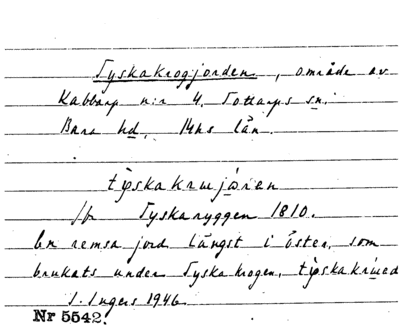 Tyskakrogjorden, område av
Kabbarp n:r 4. Tottarps sn.
Bara hd, Mhs län.
týskakrwjøren
jfr Tyskaryggen 1810.
En remsa jord längst i öster, som
brukats under Tyskakrogen, týskakrwed
I. Ingers 1946.
Nr 5542.